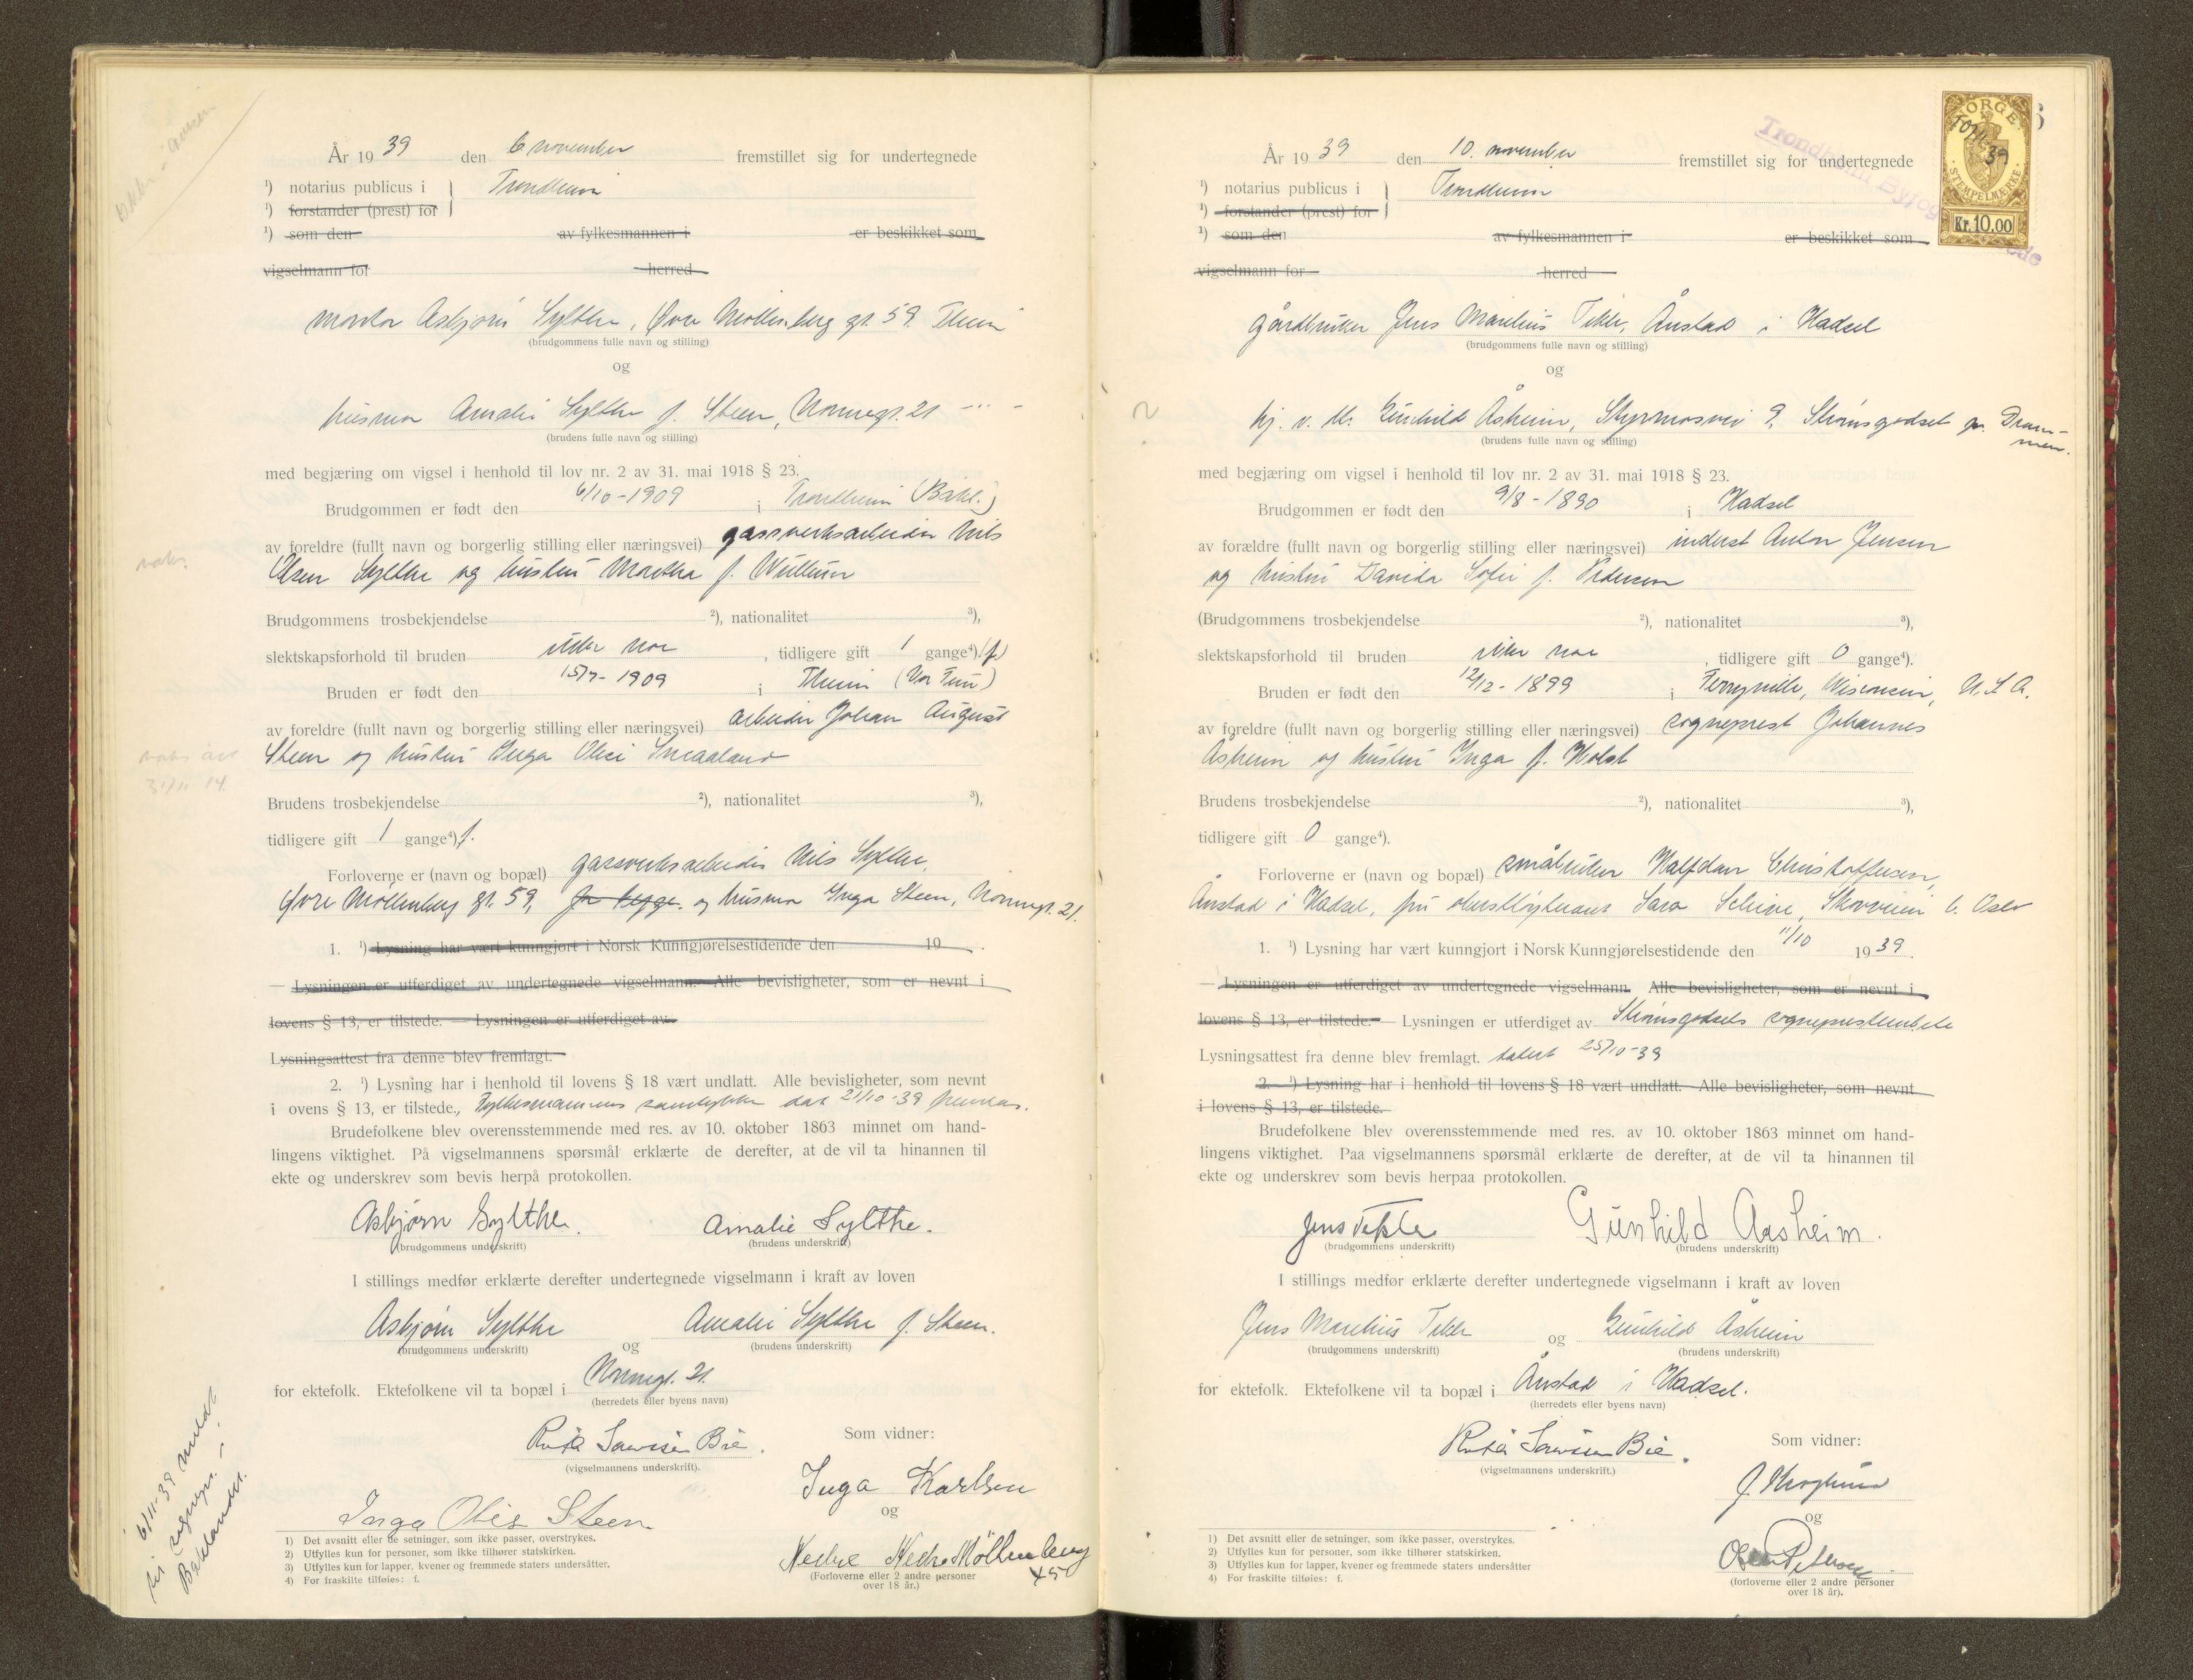 År 1939 den 6 november fremstillet sig for undertegnede
¹) notarius publicus i Trondheim
¹) forstander (prest) for
¹) som den av fylkesmannen i er beskikket som
vigselmann for herred
montør Asbjørn Sylthe, Øvre Møllenberg gt. 59. Theim
(brudgommens fulle navn og stilling)
og
husmor Amalie Sylthe f. Steen, Nonnegt. 21
(brudens fulle navn og stilling)
med begjæring om vigsel i henhold til lov nr. 2 av 31. mai 1918 § 23.
Brudgommen er født den 6/10-1909 i Trondheim (Bakl.)
av foreldre (fullt navn og borgerlig stilling eller næringsvei) gassverksarbeider Nils
Olsen Sylthe og hustru Martha f. Wullum
Brudgommens trosbekjendelse ²), nationalitet ³),
slektskapsforhold til bruden ikke noe, tidligere gift 1 gange⁴) (f.)
Bruden er født den 15/7-1909 i Theim (Vor Frue)
av foreldre (fullt navn og borgerlig stilling eller næringsvei) arbeider Johan August
Steen og hustru Inga Olise Smaaland
Brudens trosbekjendelse ²), nationalitet ³),
tidligere gift 1 gange⁴) f.
Forloverne er (navn og bopæl) gassverksarbeider Nils Sylthe,
Øvre Møllenberg gt. 59, for begge. og husmor Inga Steen, Nonnegt. 21.
1. ¹) Lysning har vært kunngjort i Norsk Kunngjørelsestidende den 19
— Lysningen er utferdiget av undertegnede vigselmann. Alle bevisligheter, som er nevnt i
lovens § 13, er tilstede. — Lysningen er utferdiget av
Lysningsattest fra denne blev fremlagt.
2. ¹) Lysning har i henhold til lovens § 18 vært undlatt. Alle bevisligheter, som nevnt
i ovens § 13, er tilstede., Fylkesmannens samtykke dat 21/10-39 fremlas.
Brudefolkene blev overensstemmende med res. av 10. oktober 1863 minnet om hand-
lingens viktighet. På vigselmannens spørsmål erklærte de derefter, at de vil ta hinannen til
ekte og underskrev som bevis herpå protokollen.
Asbjørn Sylthe. Amalie Sylthe.
(brudgommens underskrift) (brudens underskrift)
I stillings medfør erklærte derefter undertegnede vigselmann i kraft av loven
Asbjørn Sylthe og Amalie Sylthe f. Steen.
(brudgommens underskrift) (brudens underskrift)
for ektefolk. Ektefolkene vil ta bopæl i Nonnegt. 21.
(herredets eller byens navn)
Som vidner:
(vigselmannens underskrift).
Inga Karlsen
og
Inga Olise Steen
Nedre Møllenberg
45
(Forloverne eller 2 andre personer
over 18 år.)
1) Det avsnitt eller de setninger, som ikke passer, overstrykes.
2) Utfylles kun for personer, som ikke tilhører statskirken.
3) Utfylles kun for lapper, kvener og fremmede staters undersåtter.
4) For fraskilte tilføies: f.
6/11-39 meldt
til sognepr. i
Baklandet.
NORGE
10/11 39
STEMPELMERKE
Kr. 10.00
År 1939 den 10. november fremstillet sig for undertegnede
¹) notarius publicus i Trondheim
¹) forstander (prest) for
¹) som den av fylkesmannen i er beskikket som
vigselmann for herred
gårdbruker Jens Marelius Tekle, Ånstad i Hadsel
(brudgommens fulle navn og stilling)
og
hj. v. Gunhild Åsheim, Styrmosvei 9. Strømsgodset pr. Dram-
men.
(brudens fulle navn og stilling)
med begjæring om vigsel i henhold til lov nr. 2 av 31. mai 1918 § 23.
Brudgommen er født den 9/8-1890 i Hadsel
av forældre (fullt navn og borgerlig stilling eller næringsvei) inderst Anton Jensen
og hustru Davida Sofie f. Pedersen
(Brudgommens trosbekjendelse ²), nationalitet ³),
slektskapsforhold til bruden ikke noe, tidligere gift 0 gange⁴).
Bruden er født den 12/12-1899 i Ferryville, Wisconsin, U.S.A.
av foreldre (fullt navn og borgerlig stilling eller næringsvei) sogneprest Johannes
Åsheim og hustru Inga f. Holst
Brudens trosbekjendelse ²), nationalitet ³),
tidligere gift 0 gange⁴).
Forloverne er (navn og bopæl) småbruker Halfdan Christoffersen,
Ånstad i Hadsel, fru oberstløytnant Sara Scheive, Skovveien 6. Oslo
1. ¹) Lysning har vært kunngjort i Norsk Kunngjørelsestidende den 11/10 1939.
— Lysningen er utferdiget av undertegnede vigselmann. Alle bevisligheter, som er nevnt i
lovens § 13, er tilstede. — Lysningen er utferdiget av Strømsgodsets sogneprestembete
Lysningsattest fra denne blev fremlagt. datert 25/10-39
2. ¹) Lysning har i henhold til lovens § 18 vært undlatt. Alle bevisligheter, som nevnt
i lovens § 13, er tilstede.
Brudefolkene blev overensstemmende med res. av 10. oktober 1863 minnet om hand-
lingens viktighet. Paa vigselmannens spørsmål erklærte de derefter, at de vil ta hinannen til
ekte og underskrev som bevis herpaa protokollen.
Jens Tekle Gunhild Aasheim.
(brudgommens underskrift) (brudens underskrift)
I stillings medfør erklærte derefter undertegnede vigselmann i kraft av loven
Jens Marelius Tekle og Gunhild Åsheim
(brudgommens underskrift) (brudens underskrift)
for ektefolk. Ektefolkene vil ta bopæl i Ånstad i Hadsel.
(herredets eller byens navn)
Som vidner:
(vigselmannens underskrift.)
og
(forloverne eller 2 andre personer
over 18 år).
1) Det avsnitt eller de setninger, som ikke passer, overstrykes.
2) Utfylles kun for personer, som ikke tilhører statskirken.
3) Utfylles kun for lapper, kvener og fremmede staters undersåtter
4) For fraskilte tilføies: f.